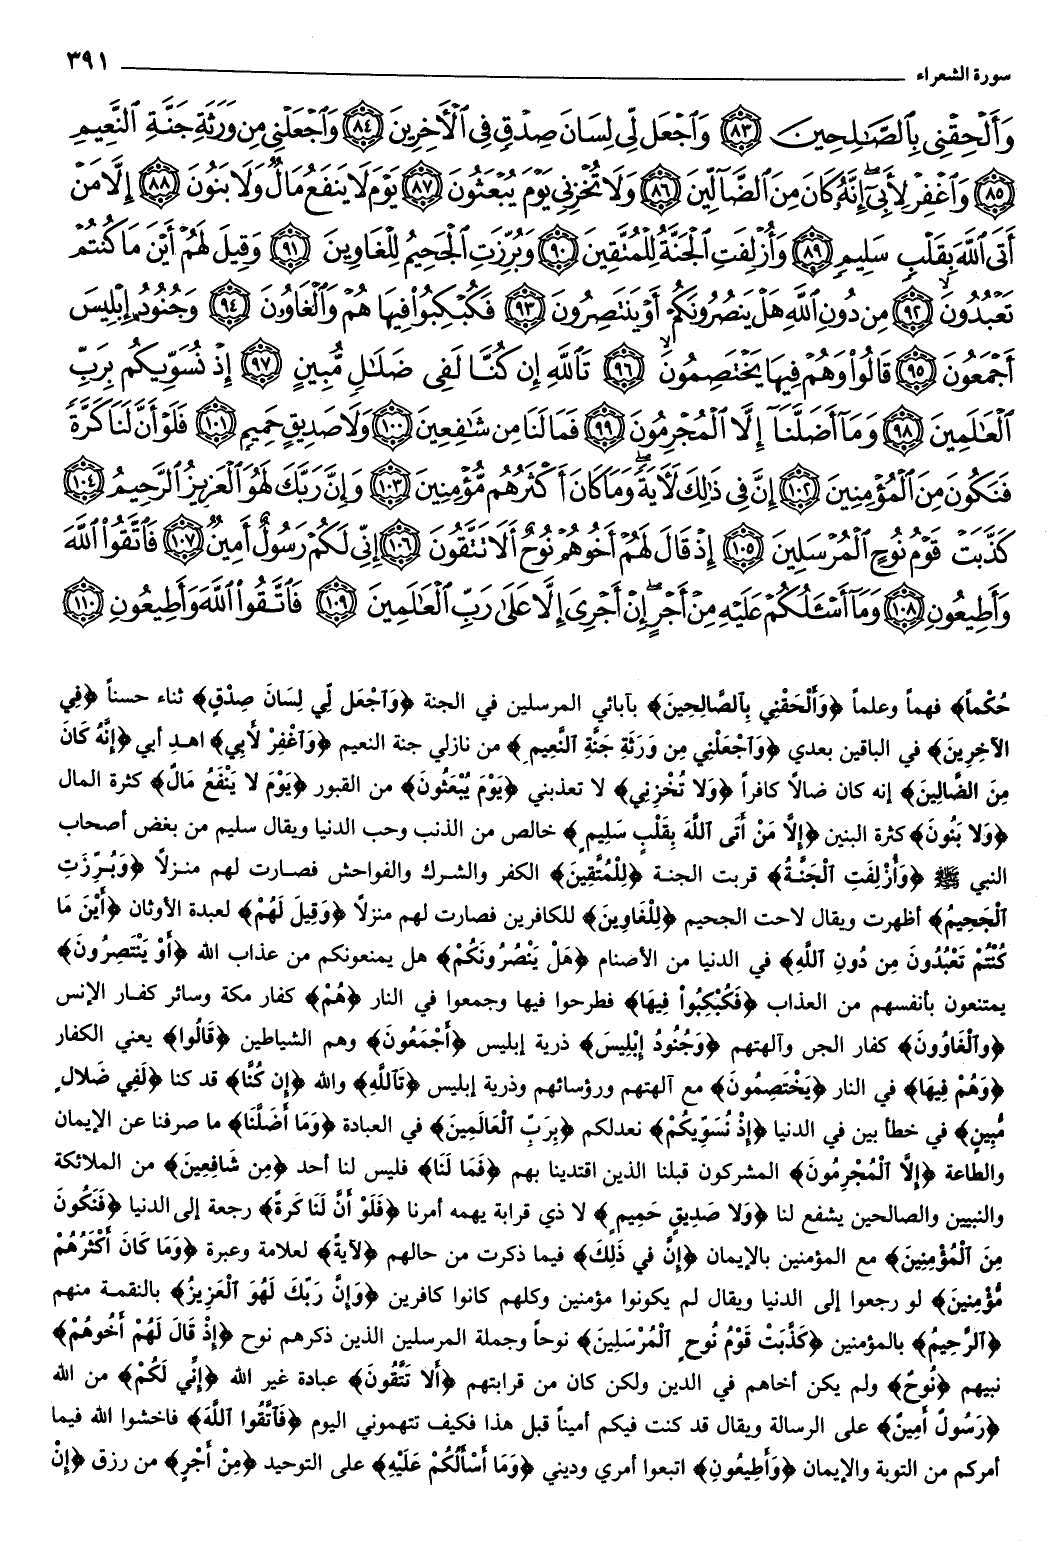 سورة الشعراء ٣٩١
وَأَلْحِقْنِي بِالصَّـٰلِحِينَ ٨٣ وَاجْعَل لِّي لِسَانَ صِدْقٍ فِي الْآخِرِينَ ٨٤ وَاجْعَلْنِي مِن وَرَثَةِ جَنَّةِ النَّعِيمِ
٨٥ وَاغْفِرْ لِأَبِي إِنَّهُ كَانَ مِنَ الضَّآلِّينَ ٨٦ وَلَا تُخْزِنِي يَوْمَ يُبْعَثُونَ ٨٧ يَوْمَ لَا يَنفَعُ مَالٌ وَلَا بَنُونَ ٨٨ إِلَّا مَنْ
أَتَى اللَّهَ بِقَلْبٍ سَلِيمٍ ٨٩ وَأُزْلِفَتِ الْجَنَّةُ لِلْمُتَّقِينَ ٩٠ وَبُرِّزَتِ الْجَحِيمُ لِلْغَاوِينَ ٩١ وَقِيلَ لَهُمْ أَيْنَ مَا كُنتُمْ
تَعْبُدُونَ ٩٢ مِن دُونِ اللَّهِ هَلْ يَنصُرُونَكُمْ أَوْ يَنتَصِرُونَ ٩٣ فَكُبْكِبُوا فِيهَا هُمْ وَالْغَاوُۥنَ ٩٤ وَجُنُودُ إِبْلِيسَ
أَجْمَعُونَ ٩٥ قَالُوا وَهُمْ فِيهَا يَخْتَصِمُونَ ٩٦ تَاللَّهِ إِن كُنَّا لَفِي ضَلَـٰلٍ مُّبِينٍ ٩٧ إِذْ نُسَوِّيكُم بِرَبِّ
الْعَـٰلَمِينَ ٩٨ وَمَآ أَضَلَّنَآ إِلَّا الْمُجْرِمُونَ ٩٩ فَمَا لَنَا مِن شَـٰفِعِينَ ١٠٠ وَلَا صَدِيقٍ حَمِيمٍ ١٠١ فَلَوْ أَنَّ لَنَا كَرَّةً
فَنَكُونَ مِنَ الْمُؤْمِنِينَ ١٠٢ إِنَّ فِي ذَٰلِكَ لَآيَةً وَمَا كَانَ أَكْثَرُهُم مُّؤْمِنِينَ ١٠٣ وَإِنَّ رَبَّكَ لَهُوَ الْعَزِيزُ الرَّحِيمُ ١٠٤
كَذَّبَتْ قَوْمُ نُوحٍ الْمُرْسَلِينَ ١٠٥ إِذْ قَالَ لَهُمْ أَخُوهُمْ نُوحٌ أَلَا تَتَّقُونَ ١٠٦ إِنِّي لَكُمْ رَسُولٌ أَمِينٌ ١٠٧ فَاتَّقُوا اللَّهَ
وَأَطِيعُونِ ١٠٨ وَمَآ أَسْـَٔلُكُمْ عَلَيْهِ مِنْ أَجْرٍ إِنْ أَجْرِيَ إِلَّا عَلَىٰ رَبِّ الْعَـٰلَمِينَ ١٠٩ فَاتَّقُوا اللَّهَ وَأَطِيعُونِ ١١٠
حُكْماً﴾ فهماً وعلماً ﴿وَأَلْحِقْنِي بِٱلصَّالِحِينَ﴾ بآبائي المرسلين في الجنة ﴿وَٱجْعَل لِّي لِسَانَ صِدْقٍ﴾ ثناء حسناً ﴿فِي
الآخِرِينَ﴾ في الباقين بعدي ﴿وَٱجْعَلْنِي مِن وَرَثَةِ جَنَّةِ ٱلنَّعِيمِ﴾ من نازلي جنة النعيم ﴿وَٱغْفِرْ لأَبِي﴾ اهدِ أبي ﴿إِنَّهُ كَانَ
مِنَ الضَّالِينَ﴾ إنه كان ضالاً كافراً ﴿وَلا تُخْزِنِي﴾ لا تعذبني ﴿يَوْمَ يُبْعَثُونَ﴾ من القبور ﴿يَوْمَ لا يَنْفَعُ مَالٌ﴾ كثرة المال
﴿وَلا بَنُونَ﴾ كثرة البنين ﴿إِلاَّ مَنْ أَتَى ٱللَّهَ بِقَلْبٍ سَلِيمٍ﴾ خالص من الذنب وحب الدنيا ويقال سليم من بغض أصحاب
النبي ﷺ ﴿وَأُزْلِفَتِ ٱلْجَنَّةُ﴾ قربت الجنة ﴿لِلْمُتَّقِينَ﴾ الكفر والشرك والفواحش فصارت لهم منزلاً ﴿وَبُرِّزَتِ
ٱلْجَحِيمُ﴾ أظهرت ويقال لاحت الجحيم ﴿لِلْغَاوِينَ﴾ للكافرين فصارت لهم منزلاً ﴿وَقِيلَ لَهُمْ﴾ لعبدة الأوثان ﴿أَيْنَ مَا
كُنْتُمْ تَعْبُدُونَ مِن دُونِ ٱللَّهِ﴾ في الدنيا من الأصنام ﴿هَلْ يَنْصُرُونَكُمْ﴾ هل يمنعونكم من عذاب الله ﴿أَوْ يَنْتَصِرُونَ﴾
يمتنعون بأنفسهم من العذاب ﴿فَكُبْكِبُواْ فِيهَا﴾ فطرحوا فيها وجمعوا في النار ﴿هُمْ﴾ كفار مكة وسائر كفار الإنس
﴿وٱلْغَاوُونَ﴾ كفار الجن وآلهتهم ﴿وَجُنُودُ إِبْلِيسَ﴾ ذرية إبليس ﴿أَجْمَعُونَ﴾ وهم الشياطين ﴿قَالُوا﴾ يعني الكفار
﴿وَهُمْ فِيهَا﴾ في النار ﴿يَخْتَصِمُونَ﴾ مع آلهتهم ورؤسائهم وذرية إبليس ﴿تَٱللَّهِ﴾ والله ﴿إِن كُنَّا﴾ قد كنا ﴿لَفِي ضَلالٍ
مُّبِينٍ﴾ في خطأ بين في الدنيا ﴿إِذْ نُسَوِّيكُمْ﴾ نعدلكم ﴿بِرَبِّ ٱلْعَالَمِينَ﴾ في العبادة ﴿وَمَا أَضَلَّنَا﴾ ما صرفنا عن الإيمان
والطاعة ﴿إِلَّا ٱلْمُجْرِمُونَ﴾ المشركون قبلنا الذين اقتدينا بهم ﴿فَمَا لَنَا﴾ فليس لنا أحد ﴿مِن شَافِعِينَ﴾ من الملائكة
والنبيين والصالحين يشفع لنا ﴿وَلا صَدِيقٍ حَمِيمٍ﴾ لا ذي قرابة يهمه أمرنا ﴿فَلَوْ أَنَّ لَنَا كَرةً﴾ رجعة إلى الدنيا ﴿فَنَكُونَ
مِنَ ٱلْمُؤْمِنِينَ﴾ مع المؤمنين بالإيمان ﴿إِنَّ في ذَلِكَ﴾ فيما ذكرت من حالهم ﴿لآيةً﴾ لعلامة وعبرة ﴿وَمَا كَانَ أَكْثَرُهُمْ
مُّؤْمِنِينَ﴾ لو رجعوا إلى الدنيا ويقال لم يكونوا مؤمنين وكلهم كانوا كافرين ﴿وَإِنَّ رَبَّكَ لَهُوَ ٱلْعَزِيزُ﴾ بالنقمة منهم
﴿ٱلرَّحِيمُ﴾ بالمؤمنين ﴿كَذَّبَتْ قَوْمُ نُوحٍ ٱلْمُرْسَلِينَ﴾ نوحاً وجملة المرسلين الذين ذكرهم نوح ﴿إِذْ قَالَ لَهُمْ أَخُوهُمْ﴾
نبيهم ﴿نُوحٌ﴾ ولم يكن أخاهم في الدين ولكن كان من قرابتهم ﴿أَلا تَتَّقُونَ﴾ عبادة غير الله ﴿إِنِّي لَكُمْ﴾ من الله
﴿رَسُولٌ أَمِينٌ﴾ على الرسالة ويقال قد كنت فيكم أميناً قبل هذا فكيف تتهموني اليوم ﴿فَٱتَّقُوا ٱللَّهَ﴾ فاخشوا الله فيما
أمركم من التوبة والإيمان ﴿وَأَطِيعُونِ﴾ اتبعوا أمري وديني ﴿وَمَا أَسْأَلُكُمْ عَلَيْهِ﴾ على التوحيد ﴿مِنْ أَجْرٍ﴾ من رزق ﴿إِنْ